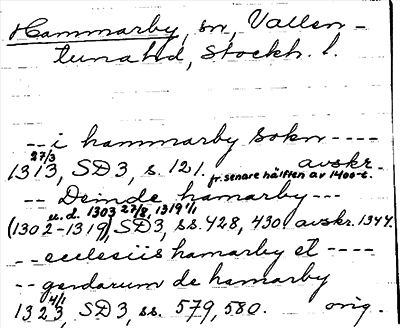 Hammarby, sn, Vallen-
tuna hd, Stockh. l.
-- i hammarby sokn ----
27/3
1313, SD3, s. 121. avskr.
fr. senare hälften av 1400-t.
-- Deinde hamarby ---
u. d. 1303 27/8, 1319 1/1
(1302-1319), SD3, ss. 428, 430. avskr. 1344.
-- ecclesiis hamarby et ----
-- gardarum de hamarby
4/1
1323, SD3, ss. 579, 580. orig.